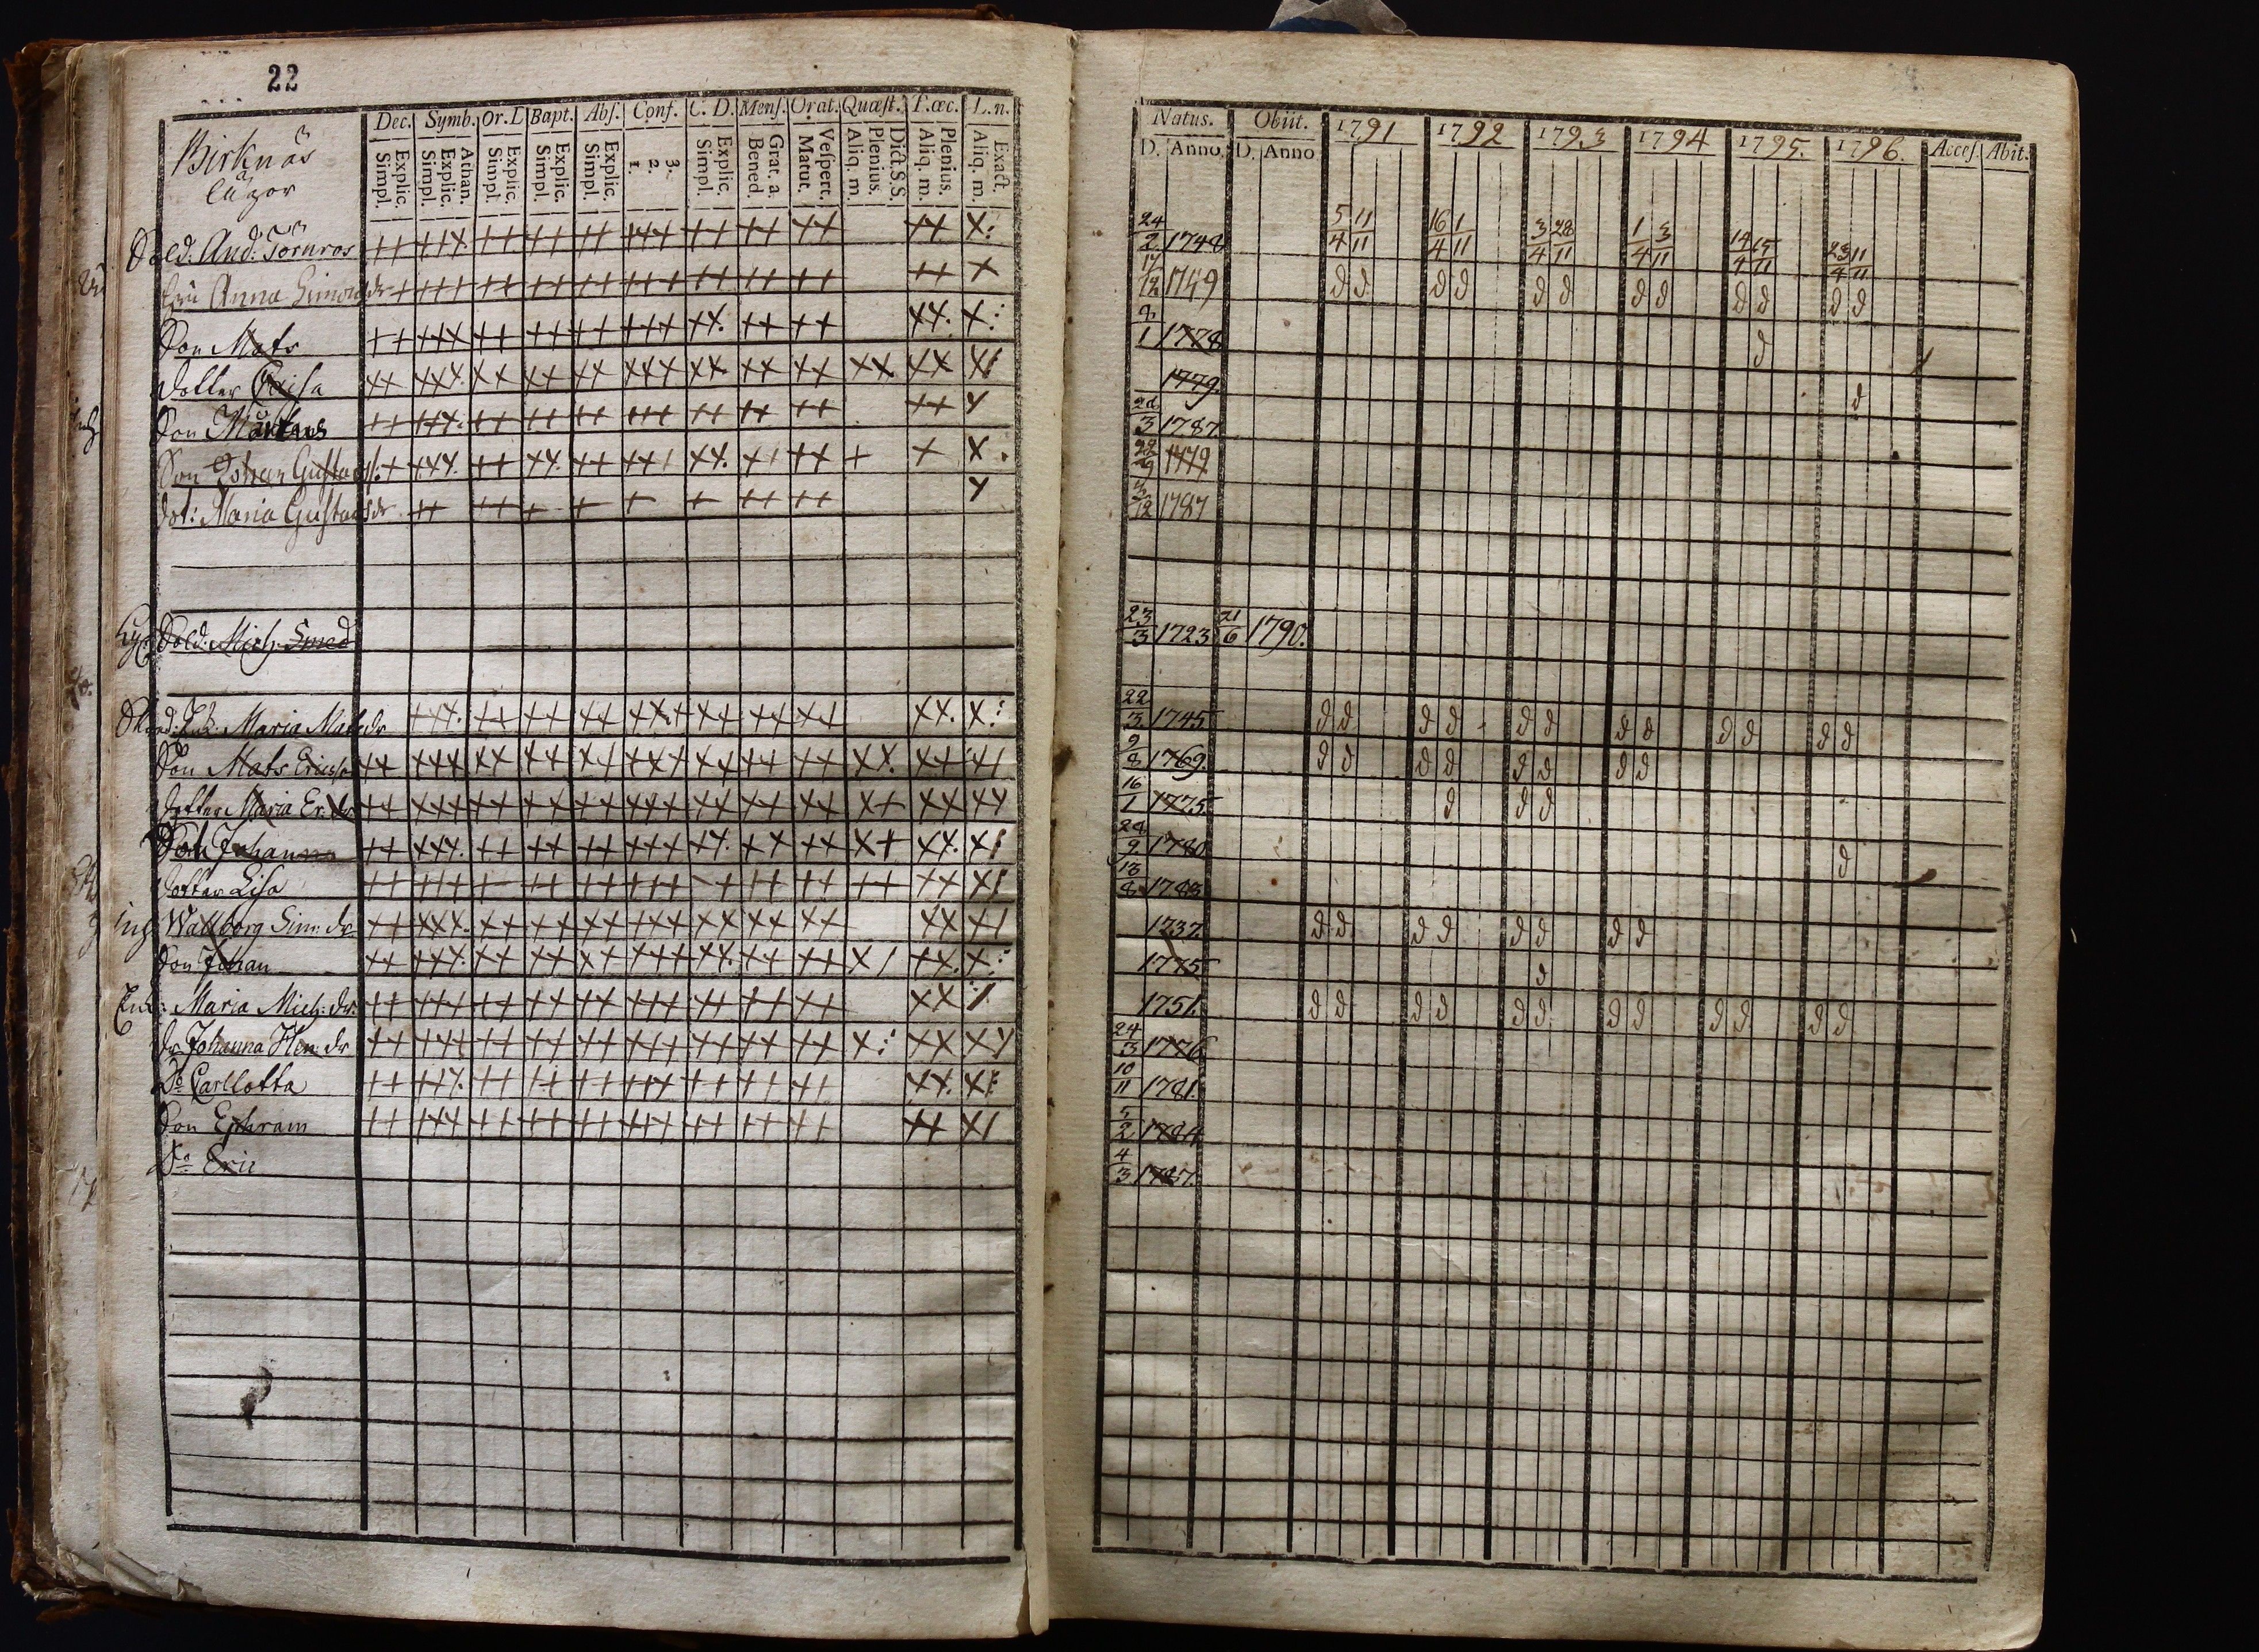 22
Dec. Symb. Or. L Bapt. Abſ. Conf. C. D. Menſ. Orat. Quæſt. T. œc. L. n.
Explic. Simpl. Athan. Explic. Simpl. Explic. Simpl. Explic. Simpl. Explic. Simpl. 3. 2. 1. Explic. Simpl. Grat. a. Bened. Veſpert. Matut. Dict. S. S. Plenius. Aliq. m. Plenius. Aliq. m. Exact. Aliq. m.
Birknäs
Natus. Obiit. 1791 1792 1793 1794 1795. 1796. Acceſ. Abit.
D. Anno. D. Anno
5/4 11/11 16/4 1/11 3/4 28/11 1/4 3/11 14/4 15/11 23/4 11/11
Sold: And: Törnros 24/2 1748
Anna Simonsdr 17/12 1749 d d d d d d d d d d d d
Son Mats 8/1 1778 d
dotter 1779. d
Son 3 1787.
Son Johan Gustafs: 9 1779
dot: Maria Gustafsdr 12 1787
Sold: Mich. Smed 23/3 1723 21/6 1790.
Maria Matsdr 22/3 1745 d d d d d d d d d d d d
Son Mats Ericsson 9/8 1769. d d d d d d d d
dotter Maria Er: dr 16/1 1775. d d d
Johanna 9 1780 d
dotter Lisa 8 1783
inh Wallborg Sim: dr 1737. d d d d d d d d
Son Johan 1775 d
Enk: Maria Mich: dr: 1751. d d d d d d d d d d d d
dr Johanna Hen: dr 24/3 1776
Do Carllotta 10/11 1781.
Son Ephraim 5/2 1784
Do Eric 4/3 1787.